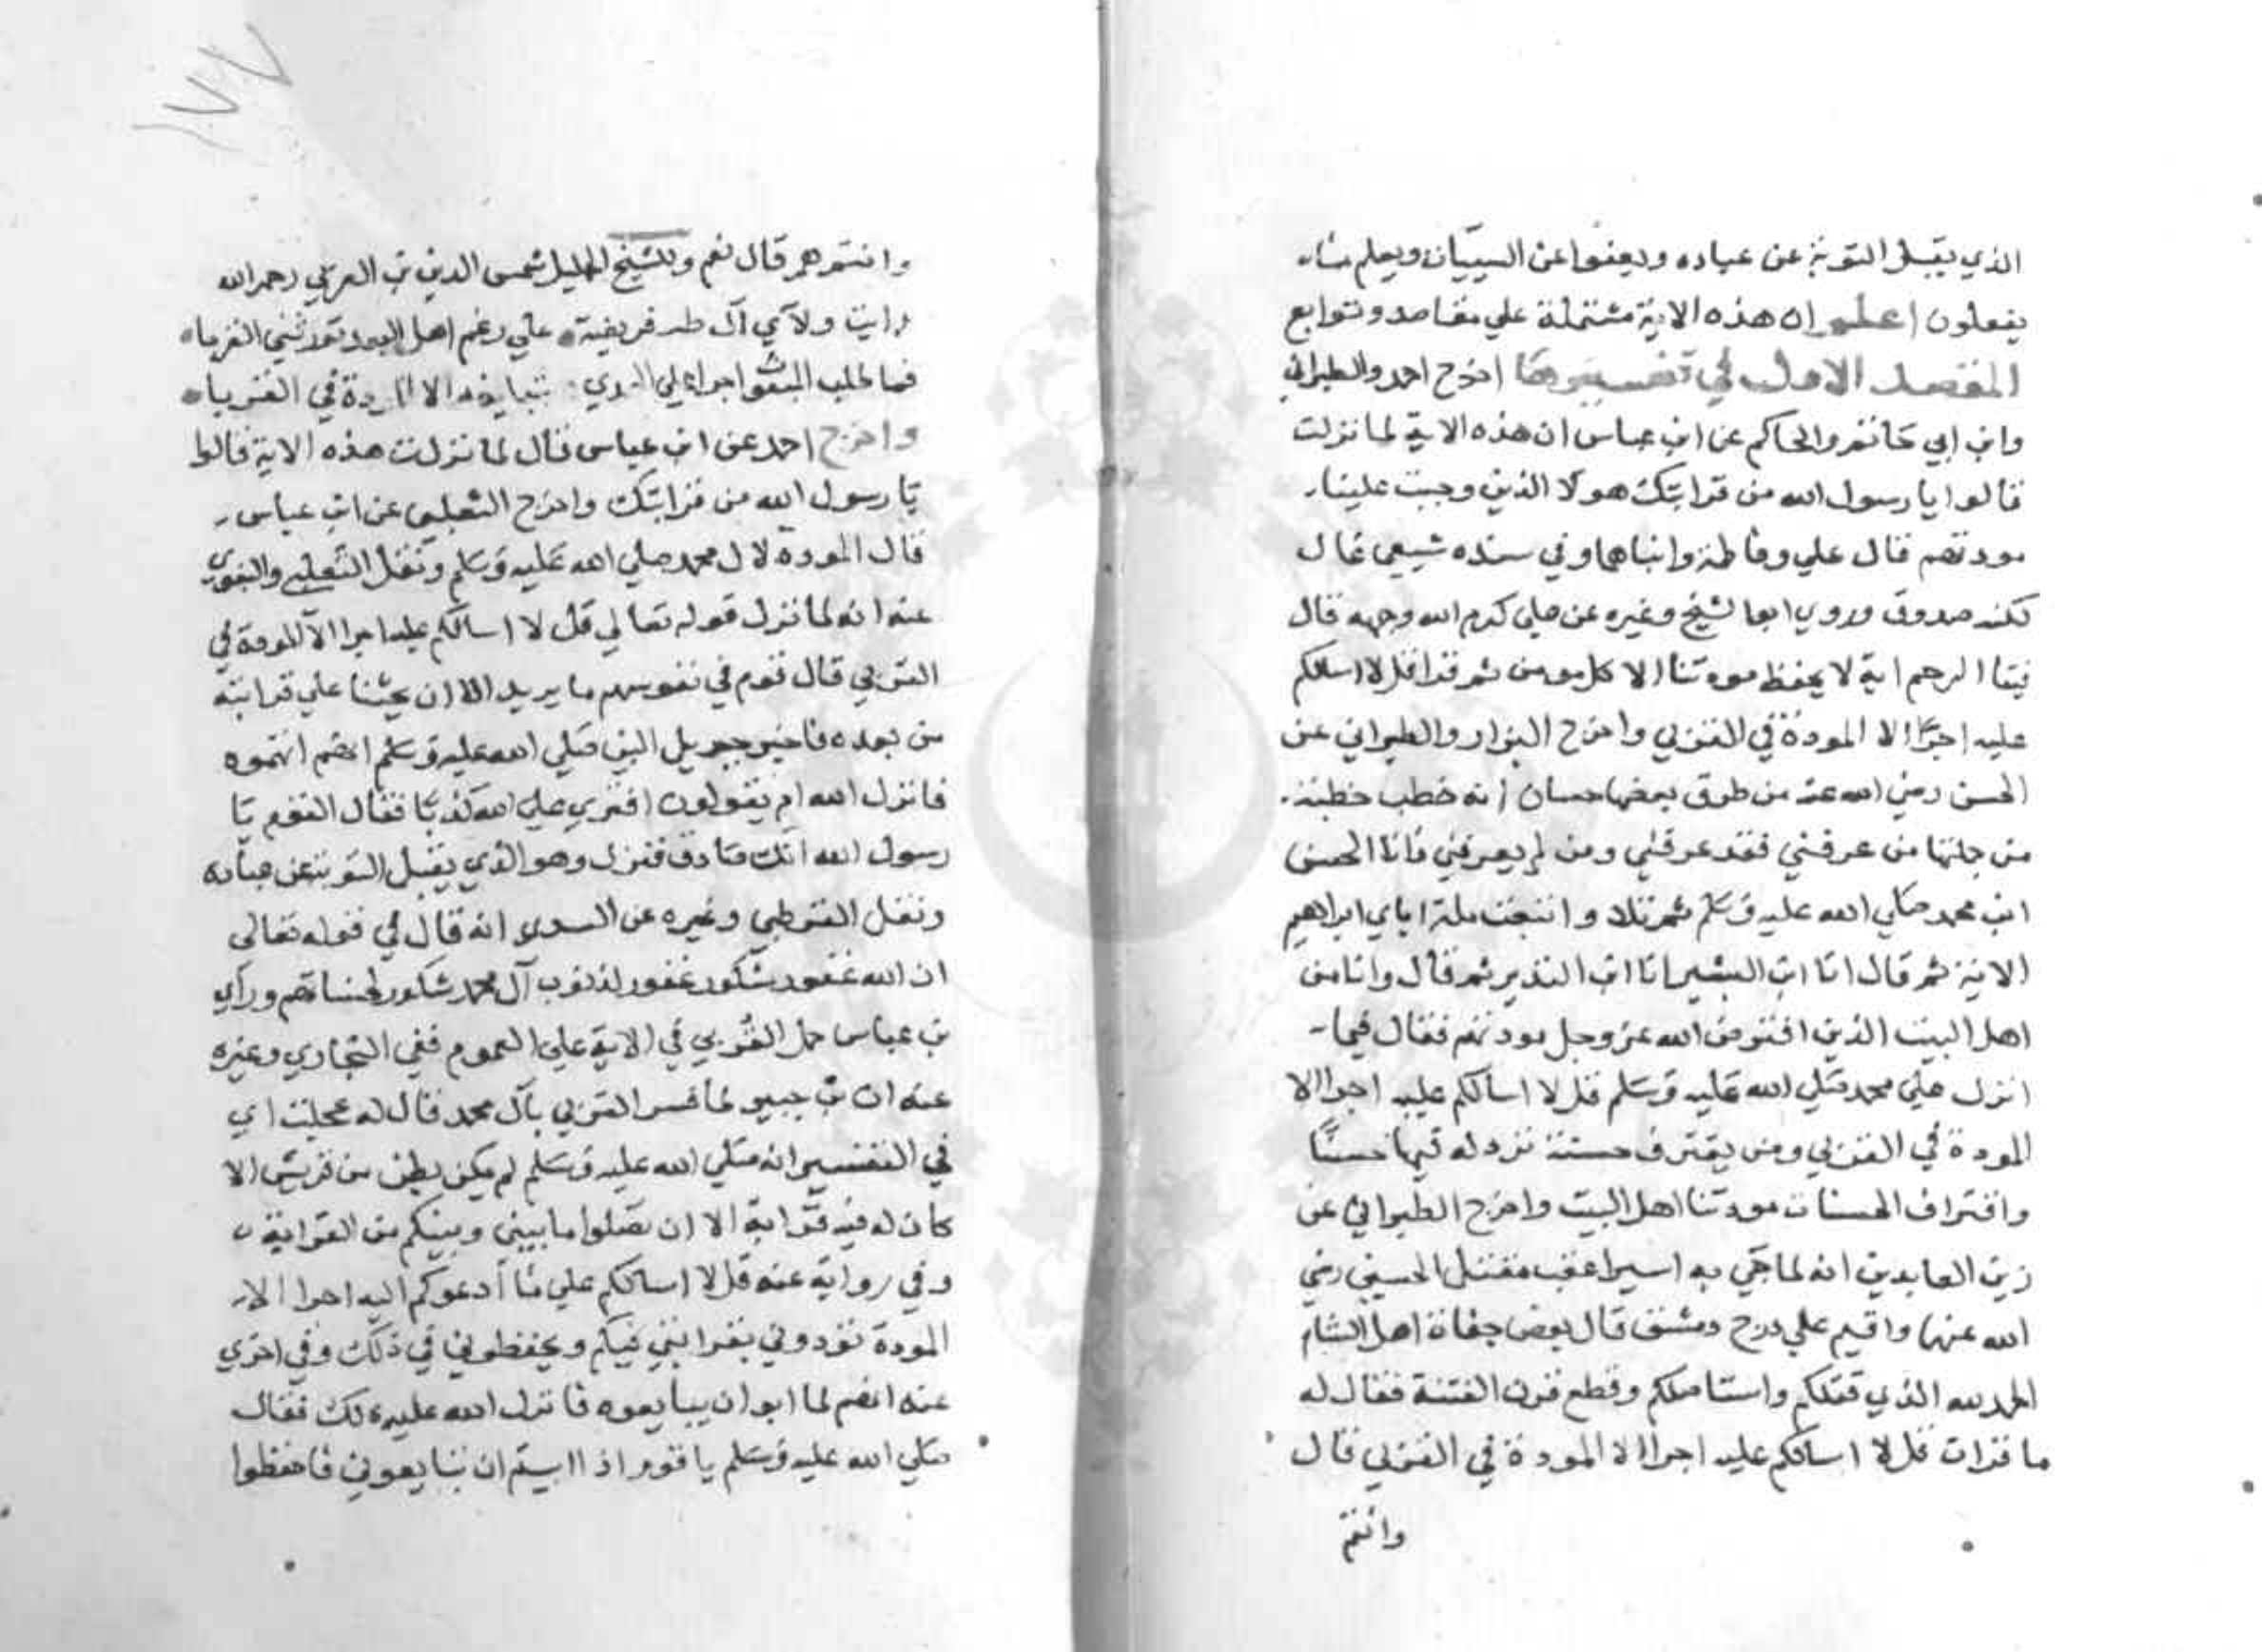 الذي يقبل التوبة عن عباده ويعفوا عن السييات ويعلم ما
يفعلون اعلم ان هذه الاية مشتملة علي مقاصد وتوابع
المقصد الاول في تفسيرها اخرج احمد والطبراني
وابن ابي حاتم والحاكم عن ابن عباس ان هذه الاية لما نزلت
قالوا يا رسول الله من قرابتك هولا الذين وجبت علينا
مودتهم قال علي وفاطمة وابناهما وفي سنده شيعي غال
لكنه صدوق وروي ابوا لشيخ وغيره عن علي كرم الله وجهه قال
فينا ال رحم اية لا يحفظ مودتنا الا كل مومن ثم قرا قل لا اسالكم
عليه اجرا الا المودة في القربي واخرج البزار والطبراني عن
الحسن رضي الله عنه من طرق بعضها حسان انه خطب خطبة
من جملتها من عرفني فقد عرفني ومن لم يعرفني فانا الحسن
ابن محمد صلي الله عليه وسلم ثم تلا واتبعت ملة اباي ابراهيم
الاية ثم قال انا ابن البشير انا ابن النذير ثم قال وانا من
اهل البيت الذين افترض الله عز وجل مودتهم فقال فيما
انزل علي محمد صلي الله عليه وسلم قل لا اسالكم عليه اجرا الا
المودة في القربي ومن يقترف حسنة نزد له فيها حسنًا
واقتراف الحسنات مودتنا اهل البيت واخرج الطبراني عن
زين العابدين انه لما جي به اسيرا عقب مقتل الحسين رضي
الله عنهما واقيم علي درج دمشق قال بعض جفاة اهل الشام
الحمد لله الذي قتلكم واستاصلكم وقطع قرن الفتنة فقال له
ما قرات قل لا اسالكم عليه اجرا الا المودة في القربي قال
وانتم
١٧٧
وانتم هم قال نعم وللشيخ الجليل شمس الدين بن العربي رحمه الله
رايت ولآي آل طه فريضة علي رغم اهل البعد تورثني القربا
فما طلب المبعوث اجرا علي الهدي بتبليغه الا المودة في القربا
واخرج احمد عن ابن عباس قال لما نزلت هذه الاية قالوا
يا رسول الله من قرابتك واخرج الثعلبي عن ابن عباس
قال المودة لال محمد صلي الله عليه وسلم ونقل الثعلبي والبغوي
عنه انه لما نزل قوله تعالي قل لا اسالكم عليه اجرا الا المودة في
القربي قال قوم في نفوسهم ما يريد الا ان يحثنا علي قرابته
من بعده فاخبر جبريل النبي صلي الله عليه وسلم انهم اتهموه
فانزل الله ام يقولون افتري علي الله كذبا فقال القوم يا
رسول الله انك صادق فنزل وهو الذي يقبل التوبة عن عباده
ونقل القرطبي وغيره عن السدي انه قال في قوله تعالي
ان الله غفور شكور غفور لذنوب آل محمد شكور لحسناتهم وراي
بن عباس حمل القربي في الاية علي العموم ففي البخاري وغيره
عنه ان بن جبير لما فسر القربي بآل محمد قال له عجلت اي
في التفسير انه صلي الله عليه وسلم لم يكن بطن من قريش الا
كان له فيه قرابة الا ان تصلوا ما بيني وبينكم من القرابة
وفي رواية عنه قل لا اسالكم علي ما أدعوكم اليه اجرا الا
المودة تودوني بقرابتي فيكم وتحفظوني في ذلك وفي اخري
عنه انهم لما ابوا ان يبايعوه فانزل الله عليه ذلك فقال
صلي الله عليه وسلم يا قوم اذا ابيتم ان تبايعوني فاحفظوا